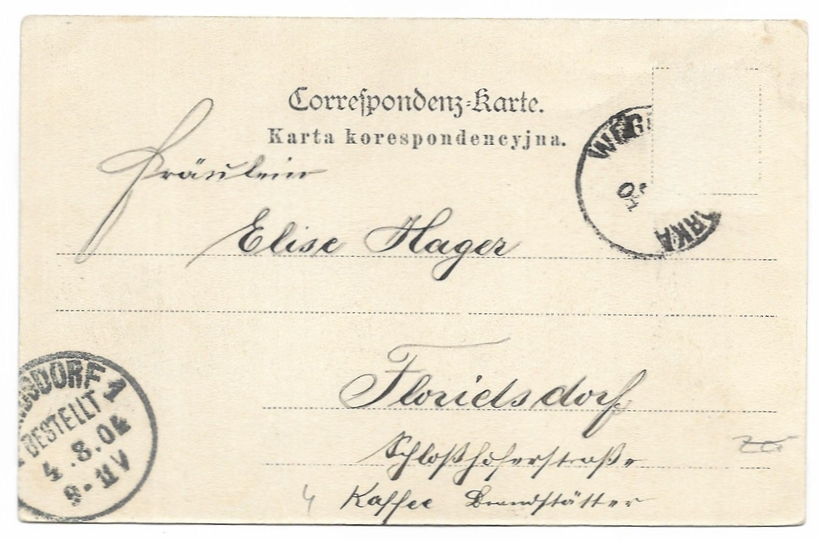 Correspondenz-Karte.
Karta korespondencyjna.
Fräulein
Elise Hager
Floridsdorf
Schloßhoferstraße
Kaffee Brandstätter
DSDORF 1
BESTELLT
4.8.04
9-11V